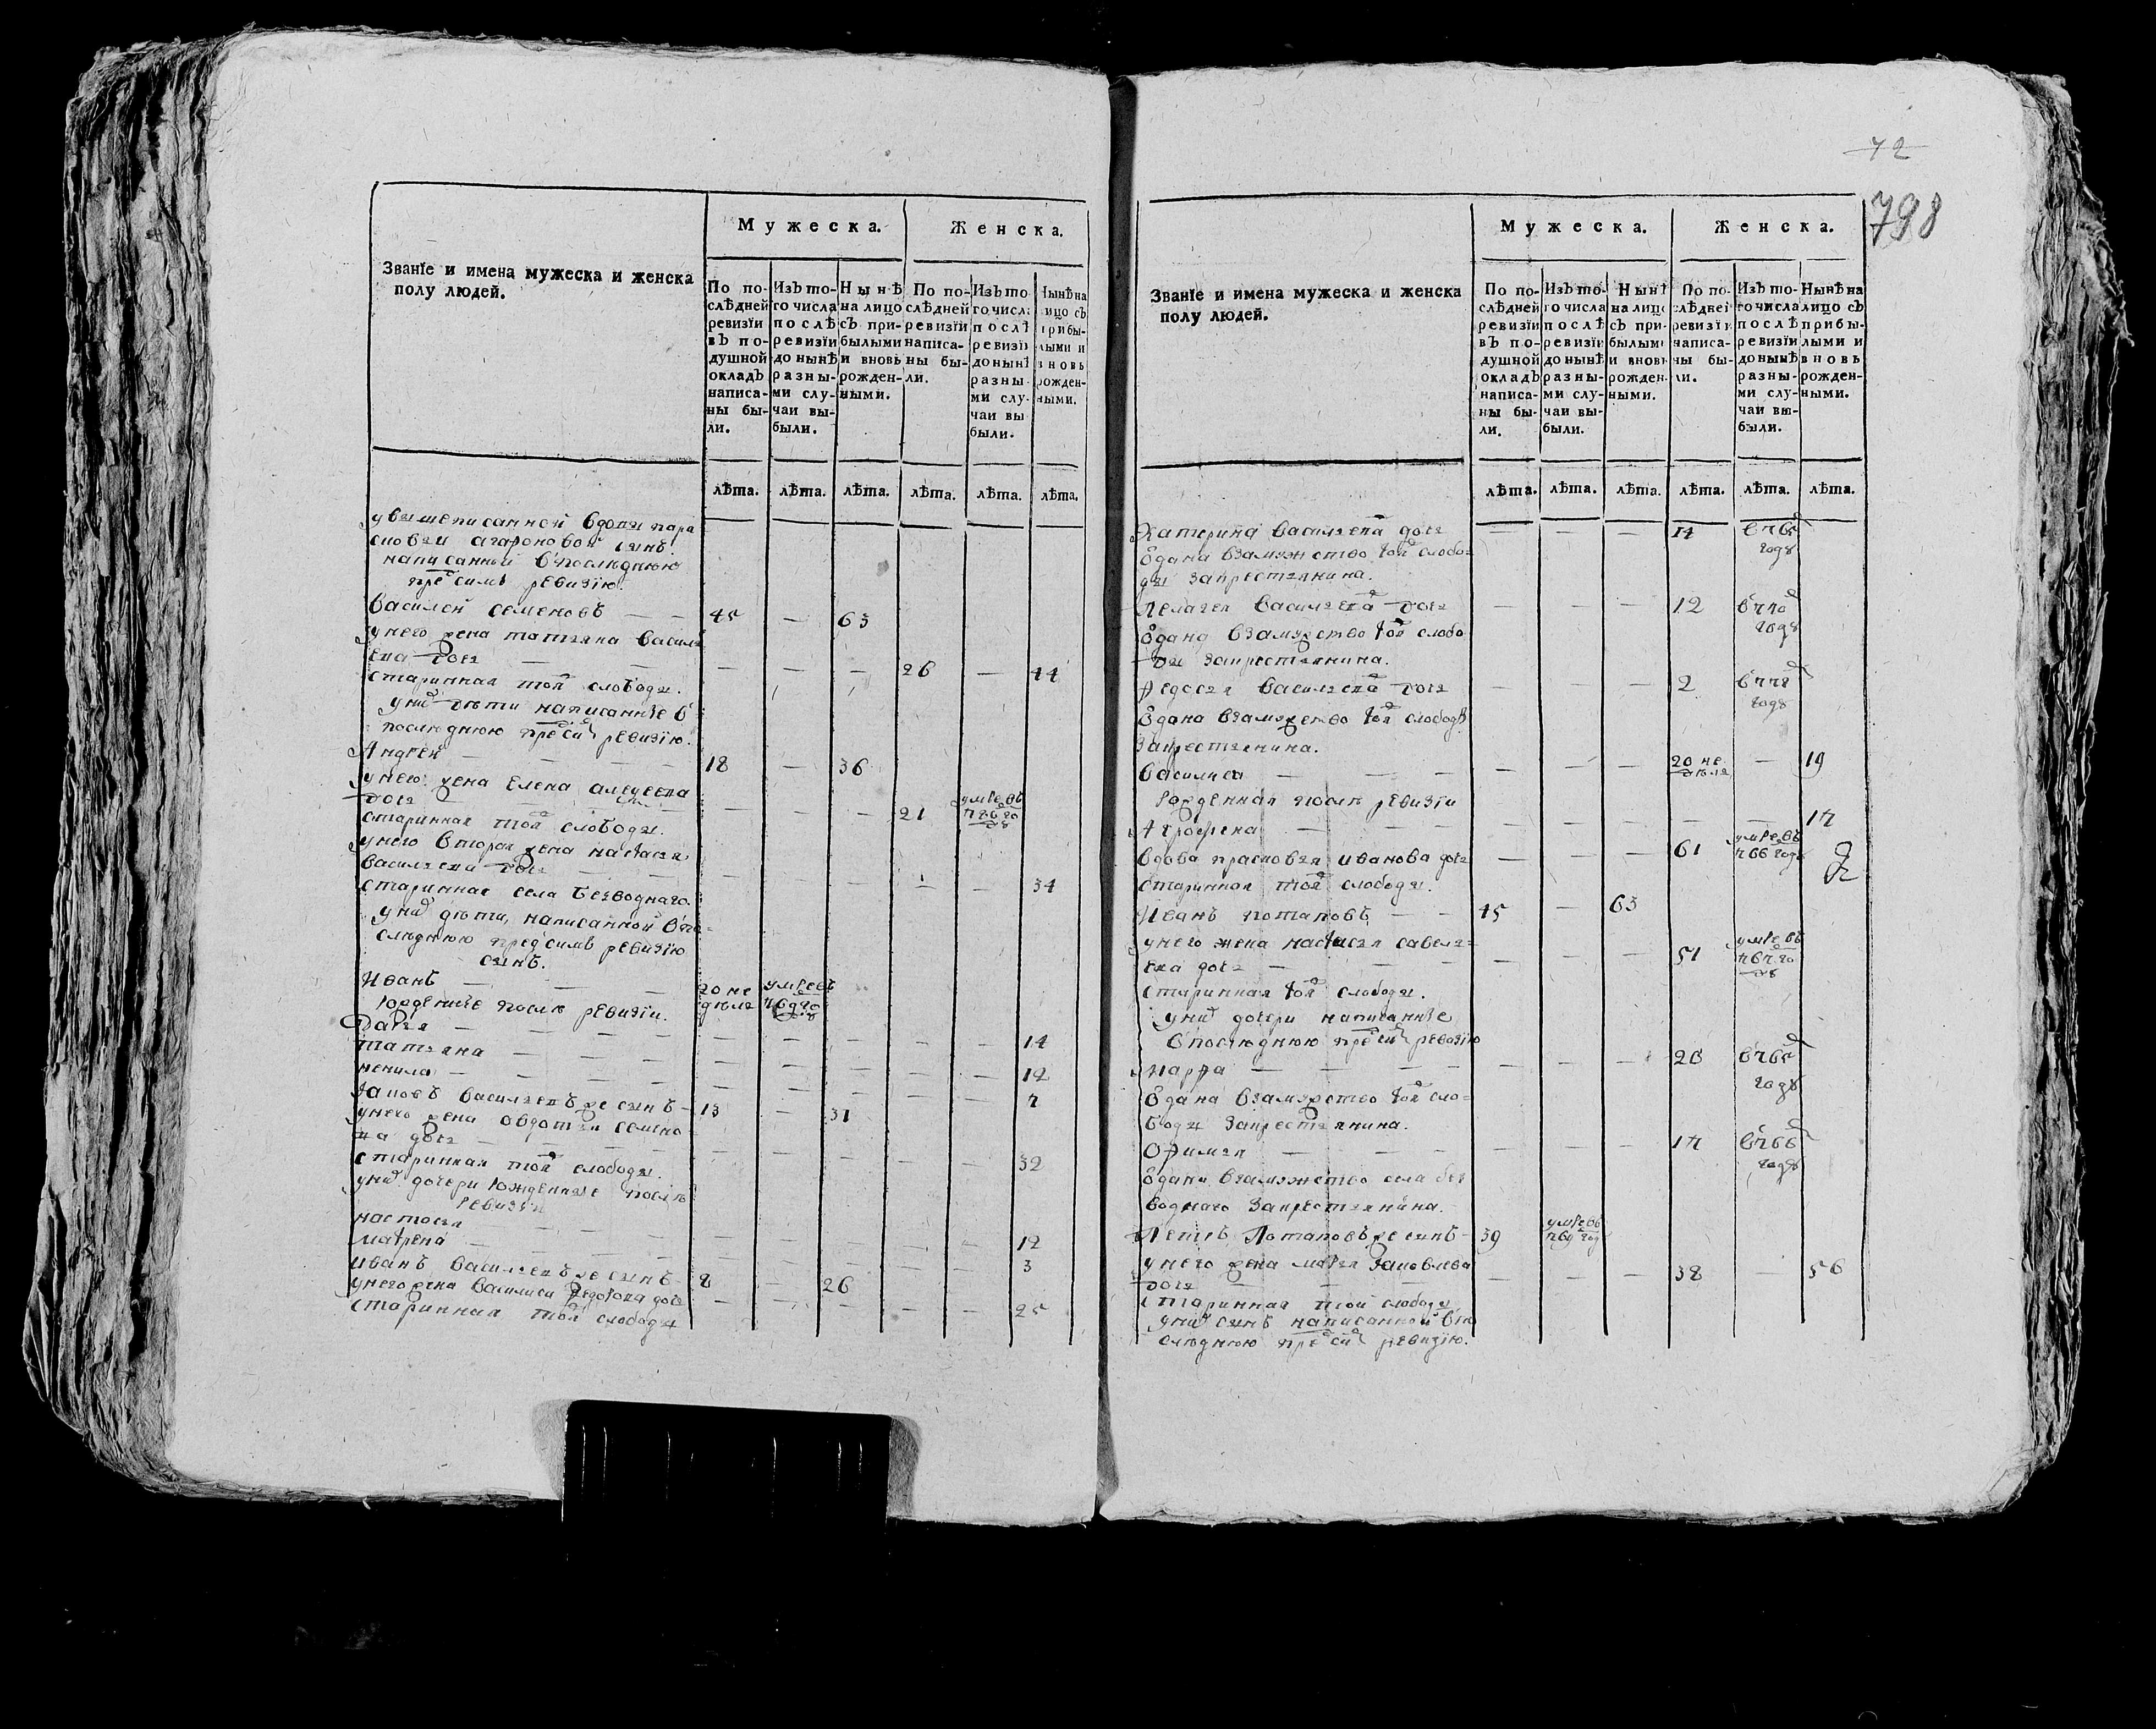 Званїе и имена мужеска и женска
полу людей.
Мужеска.
Женска.
По по-
слѣдней
ревизїи
въ по-
душной
окладъ
написа-
ны бы-
ли.
Изъ то-
го числа
послѣ
ревизїи
до нынѣ
разны-
ми слу-
чаи вы-
были.
Нынѣ
на лицо
съ при-
былыми
и вновь
рожден-
ными.
По по-
слѣдней
ревизїи
написа-
ны бы-
ли.
Изъ то
го числ
послѣ
ревизїи
до нынѣ
разны
ми слу-
чаи вы
были.
Нынѣ на
лицо съ
прибы-
лыми и
вновь
рожден-
ными.
лѣта. лѣта. лѣта. лѣта. лѣта. лѣта.
написанный
ревизїю
василей семеновъ — — 45 — 63
у него жена татьяна василь
ева дочь — — — — — 26 — 44
старинная той слободы.
у них дѣти написанные в
последнюю пред сим ревизїю.
Андрей — — — — 18 — 36
у него жена елена
дочь — — — — 21
старинная той слободы.
у него вторая жена настасья
васильева дочь — — — — — — 34
старинная села безводнаго.
у них дѣти, написанной в по=
следнюю пред симъ ревизїю
сынъ.
Иванъ — — — 20 не
дель
рожденные после ревизїи.
Дарья — — — — — — 14
татьяна — — — — — — 12
ненила — — — — — — 7
Яковъ васильевъ же сынъ — 13 — 31
у него жена овдотья семено
ва дочь — — — — — — 32
старинная той слободы.
у них дочери рожденные после
ревизїи
настасья — — — — — — 12
матрена — — — — — — 3
иванъ васильевъ же сынъ 8 — 26
у него жена василиса федорова дочь — — — — — 25
старинная той слободы
72
798
Званїе и имена мужеска и женска
полу людей.
Мужеска.
Женска.
По по-
слѣдней
ревизїи
въ по-
душной
окладъ
написа-
ны бы-
ли.
Изъ то-
го числа
послѣ
ревизїи
до нынѣ
разны-
ми слу-
чаи вы-
были.
Нынѣ
на лицо
съ при-
былыми
и вновь
рожден-
ными.
По по-
слѣдней
ревизїи
написа-
ны бы-
ли.
Изъ то-
го числа
послѣ
ревизїи
до нынѣ
разны-
ми слу-
чаи вы-
были.
Нынѣ на
лицо съ
прибы-
лыми и
вновь
рожден-
ными.
лѣта. лѣта. лѣта. лѣта. лѣта. лѣта.
Катерина васильева дочь — — — 14
году
вдана взамужство той слобо=
ды за крестьянина.
пелагея васильева дочь — — — 12
году
вдана взамужство той слобо
ды за крестьянина.
Федосья васильева дочь — — — 2
году
вдана взамужство той слободы
за крестьянина.
василиса — — — — — — 20 не — 19
дель
рожденная после ревизїи
— — — — — 17
вдова прасковья иванова дочь — — — 61 умре въ
766 году
старинная той слободы.
Иванъ потаповъ — — 45 — 63
у него жена настасья савель=
ева дочь — — — — — 51 умре въ
старинная той слободы.
у них дочери написанные
в последнюю пред сим ревизїю
марфа — — — — — — 20
году
вдана взамужство той сло=
боды за крестьянина.
Офимья — — — — — 17
году
вдана взамужство села без
воднаго за крестьянина.
Петръ Потаповъ же сынъ — 39 умре въ
году
у него жена марья Яковлева
дочь — — — 38 — 56
старинная той слободы
у них сынъ написанной в по
следнюю пред сим ревизїю.